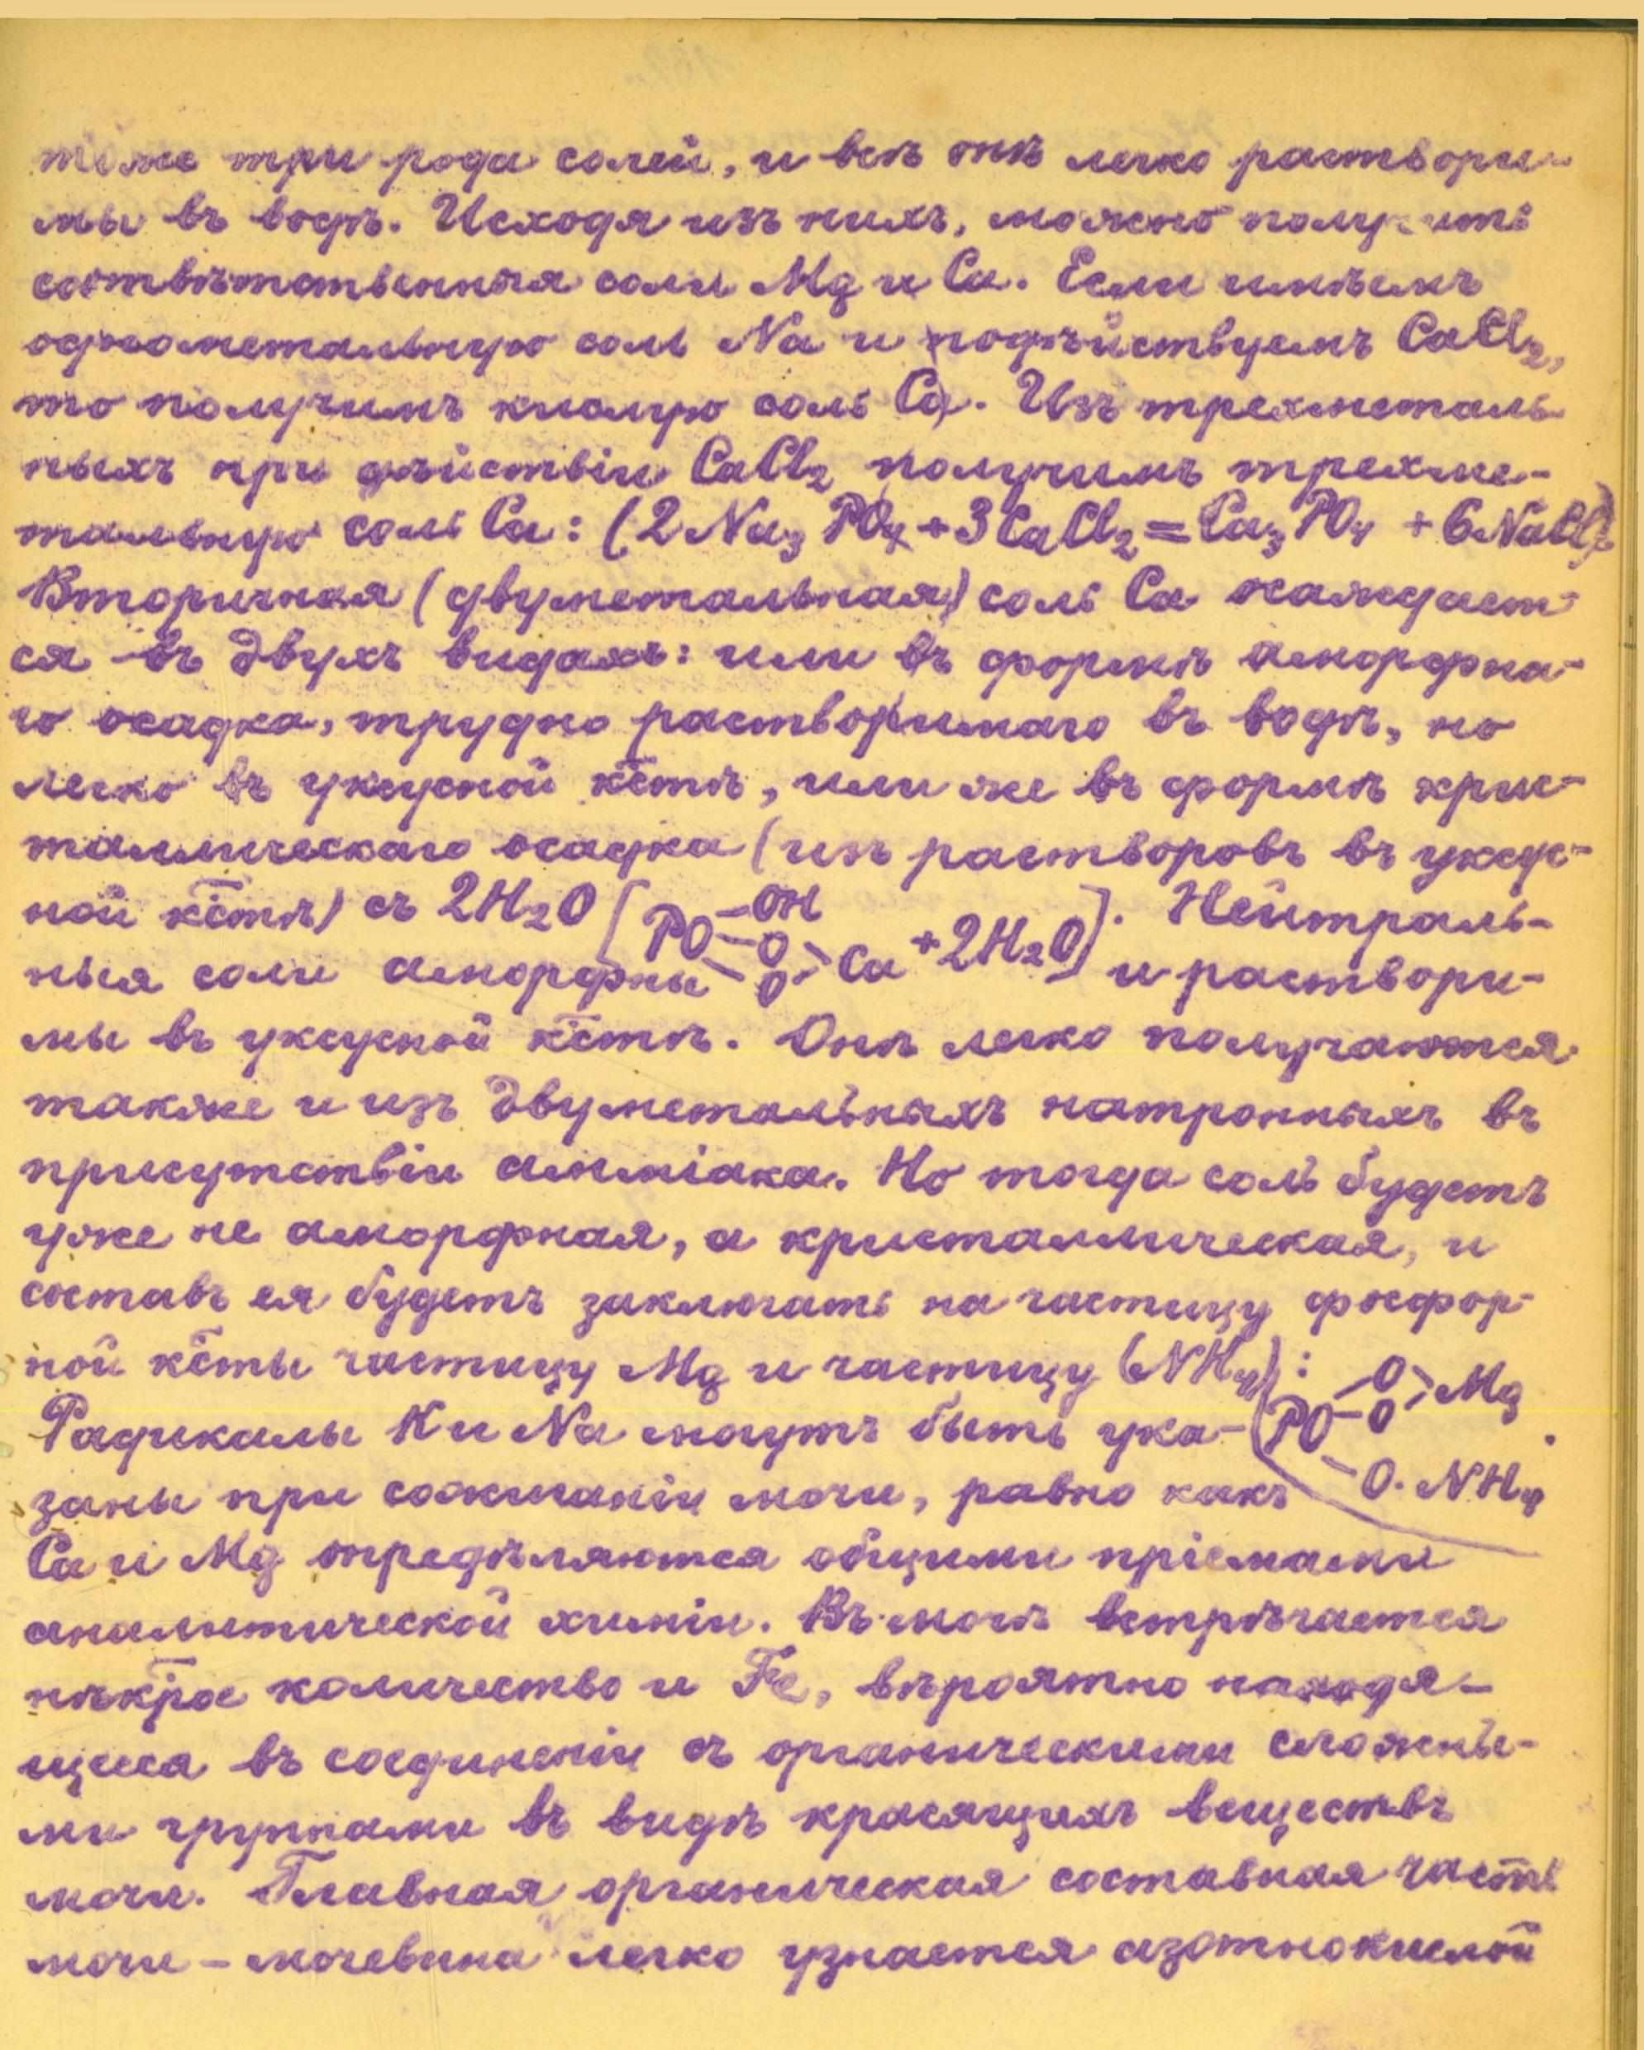 тоже три рода солей, и всѣ онѣ легко раствори-
мы въ водѣ. Исходя изъ нихъ, можно получить
соотвѣтственныя соли Mg и Ca. Если имѣемъ
однометальную соль Na и подѣйствуемъ CaCl₂,
то получимъ кислую соль Ca. Изъ трехметаль
ныхъ при дѣйствіи CaCl₂ получимъ трехме-
тальную соль Ca: (2Na₃PO₄ + 3CaCl₂ = Ca₃PO₄ + 6NaCl)
Вторичная (двуметальная) соль Ca осаждает-
ся въ двухъ видахъ: или въ формѣ аморфна-
го осадка, трудно растворимаго въ водѣ, но
легко въ уксусной к̅стѣ, или же въ формѣ крис-
таллическаго осадка (изъ растворовъ въ уксус-
ной к̅стѣ) съ 2H₂O [PO–OH –O –O >Ca + 2H₂O]. Нейтраль-
ныя соли аморфны и раствори-
мы въ уксусной к̅стѣ. Онѣ легко получаются
также и изъ двуметальныхъ натронныхъ въ
присутствіи амміака. Но тогда соль будетъ
уже не аморфная, а кристаллическая, и
составъ ея будетъ заключать на частицу фосфор-
ной к̅сты частицу Mg и частицу (NH₄):
Радикалы K и Na могутъ быть ука- (PO–O –O >Mg –O.NH₄.
заны при сожиганіи мочи, равно какъ
Ca и Mg опредѣляются общими пріемами
аналитической химіи. Въ мочѣ встрѣчается
нѣк̅рое количество и Fe, вѣроятно находя-
щееся въ соединеніи съ органическими сложны-
ми группами въ видѣ красящихъ веществъ
мочи. Главная органическая составная часть
мочи – мочевина легко узнается азотнокислой